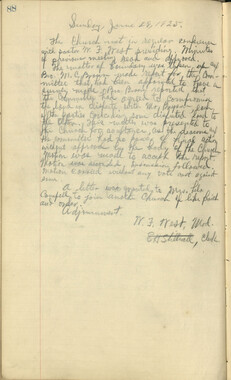 88
Sunday, June 28, 1925.
The Church met in regular conference
with pastor W. F. West presiding. Minutes
of previous meeting read and approved.
The matter of boundary was taken up by
Bro. M. C. Brown made report for the Com-
mittee that had been appointed to have a
survey made. Bro. Brown reported that
the Committee had agreed in Compromising
the land in dispute with Mr.
the parties contending some disputed land to
the other. This matter was presented to
the Church for acceptance, as the decision of
the committee had no power of final action
without approval by the body of the Church.
Motion was made to accept the report
Motion was seconded, discussion followed
Motion carried without any vote not against
same.
A letter was granted to Mrs. Lila
Campbell to join another Church of like faith
and order.
Adjournment.
W. F. West, Mod.
Clerk